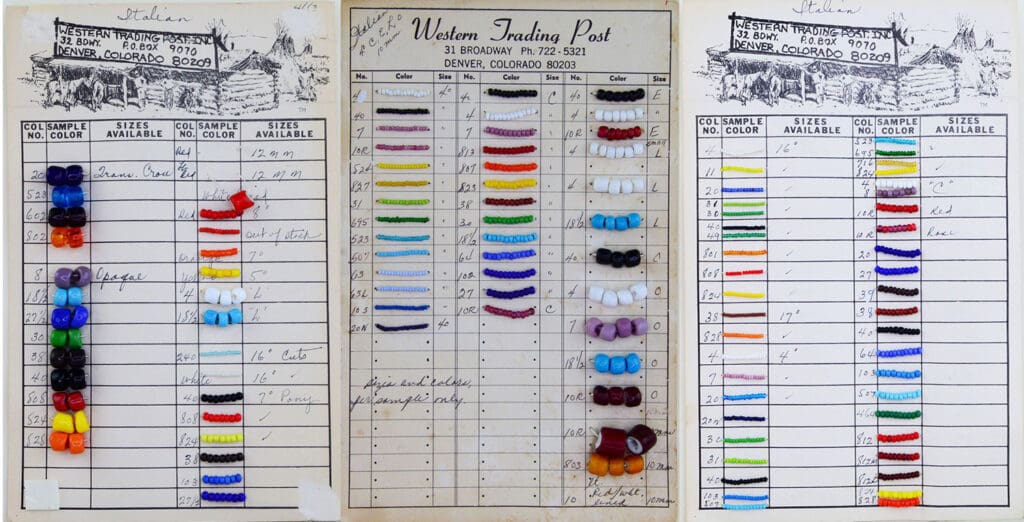 Italian
WESTERN TRADING POST, INC
32 BDWY. P.O. BOX 9070
DENVER, COLORADO 80209
COL NO. SAMPLE COLOR SIZES AVAILABLE COL NO. SAMPLE COLOR SIZES AVAILABLE
Red 12 mm
Red 12 mm
20 Trans. Crow
523 White
602 Red 8°
802 out of stock
Orange 7°
8 Opaque Yellow 5°
18½ 4 L
27½ 18½ L
30
38 240 16° Cuts
40 White 16°
808 40 7° Pony
524 808
828 824
38
103
27½
Italian
10 mm
Western Trading Post
31 BROADWAY Ph. 722-5321
DENVER, COLORADO 80203
No. Color Size No. Color Size No. Color Size
4 4° 4 C 40 E
40 " 4 " 4 "
7 " 7 " 10R E
10R " 813 " 4 L
524 " 807 "
827 " 823 " 4 L
31 " 38 "
695 " 30 " 18½ L
523 " 18½ "
507 " 64 " 40 C
63 " 102 "
63L " 27 " 4 O
103 " 10R C
20N 40 7 O
18½ O
sizes and colors,
per sample only.
10R O
10R
803 10 mm
10 Red/wht. lined 10mm
Italian
WESTERN TRADING POST, INC
32 BDWY. P.O. BOX 9070
DENVER, COLORADO 80209
TM
COL NO. SAMPLE COLOR SIZES AVAILABLE COL NO. SAMPLE COLOR SIZES AVAILABLE
4 16° 523
695
11 716
824
20 4 "C"
8
31 10R Red
30
40 10R Rose
49
801 20
808 27
824 39
38 17° 38
828 40
4 4° 64
7 103
20 507
20N 464
30 812
31 812N
40
103 824
507 828